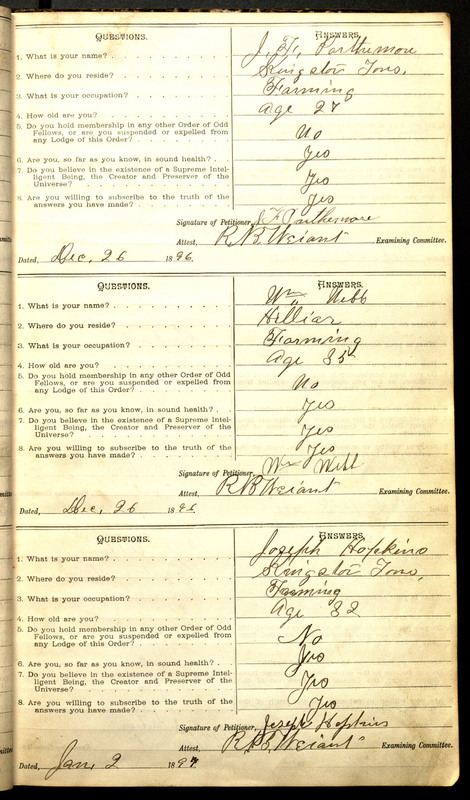 QUESTIONS. ANSWERS.
1. What is your name? J. F. Parthemore
2. Where do you reside? Kingston Town,
3. What is your occupation? Farming
4. How old are you? Age 27
5. Do you hold membership in any other Order of Odd
Fellows, or are you suspended or expelled from
any Lodge of this Order? No
6. Are you, so far as you know, in sound health? Yes
7. Do you believe in the existence of a Supreme Intel-
ligent Being, the Creator and Preserver of the
Universe? Yes
8. Are you willing to subscribe to the truth of the
answers you have made? Yes
Signature of Petitioner, J. F. Parthemore
Attest, R. B. Weiant Examining Committee.
Dated, Dec. 26 1896.
QUESTIONS. ANSWERS.
1. What is your name? Wm Webb
2. Where do you reside? Hilliar
3. What is your occupation? Farming
4. How old are you? Age 35
5. Do you hold membership in any other Order of Odd
Fellows, or are you suspended or expelled from
any Lodge of this Order? No
6. Are you, so far as you know, in sound health? Yes
7. Do you believe in the existence of a Supreme Intel-
ligent Being, the Creator and Preserver of the
Universe? Yes
8. Are you willing to subscribe to the truth of the
answers you have made? Yes
Signature of Petitioner, Wm Webb
Attest, R. B. Weiant Examining Committee.
Dated, Dec, 26 1896
QUESTIONS. ANSWERS.
1. What is your name? Joseph Hopkins
2. Where do you reside? Kingston Town,
3. What is your occupation? Farming
4. How old are you? Age 32
5. Do you hold membership in any other Order of Odd
Fellows, or are you suspended or expelled from
any Lodge of this Order? No
6. Are you, so far as you know, in sound health? Yes
7. Do you believe in the existence of a Supreme Intel-
ligent Being, the Creator and Preserver of the
Universe? Yes
8. Are you willing to subscribe to the truth of the
answers you have made? Yes
Signature of Petitioner, Joseph Hopkins
Attest, R. B. Weiant Examining Committee.
Dated, Jan, 2 1897